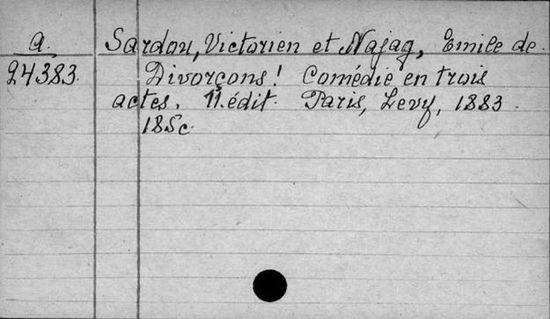 a. Sardou, Victorien et Najaq, Emile de.
24383. Divorçons! Comédie en trois
actes. 11. édit. Paris, Levy, 1883.
18⁵c.